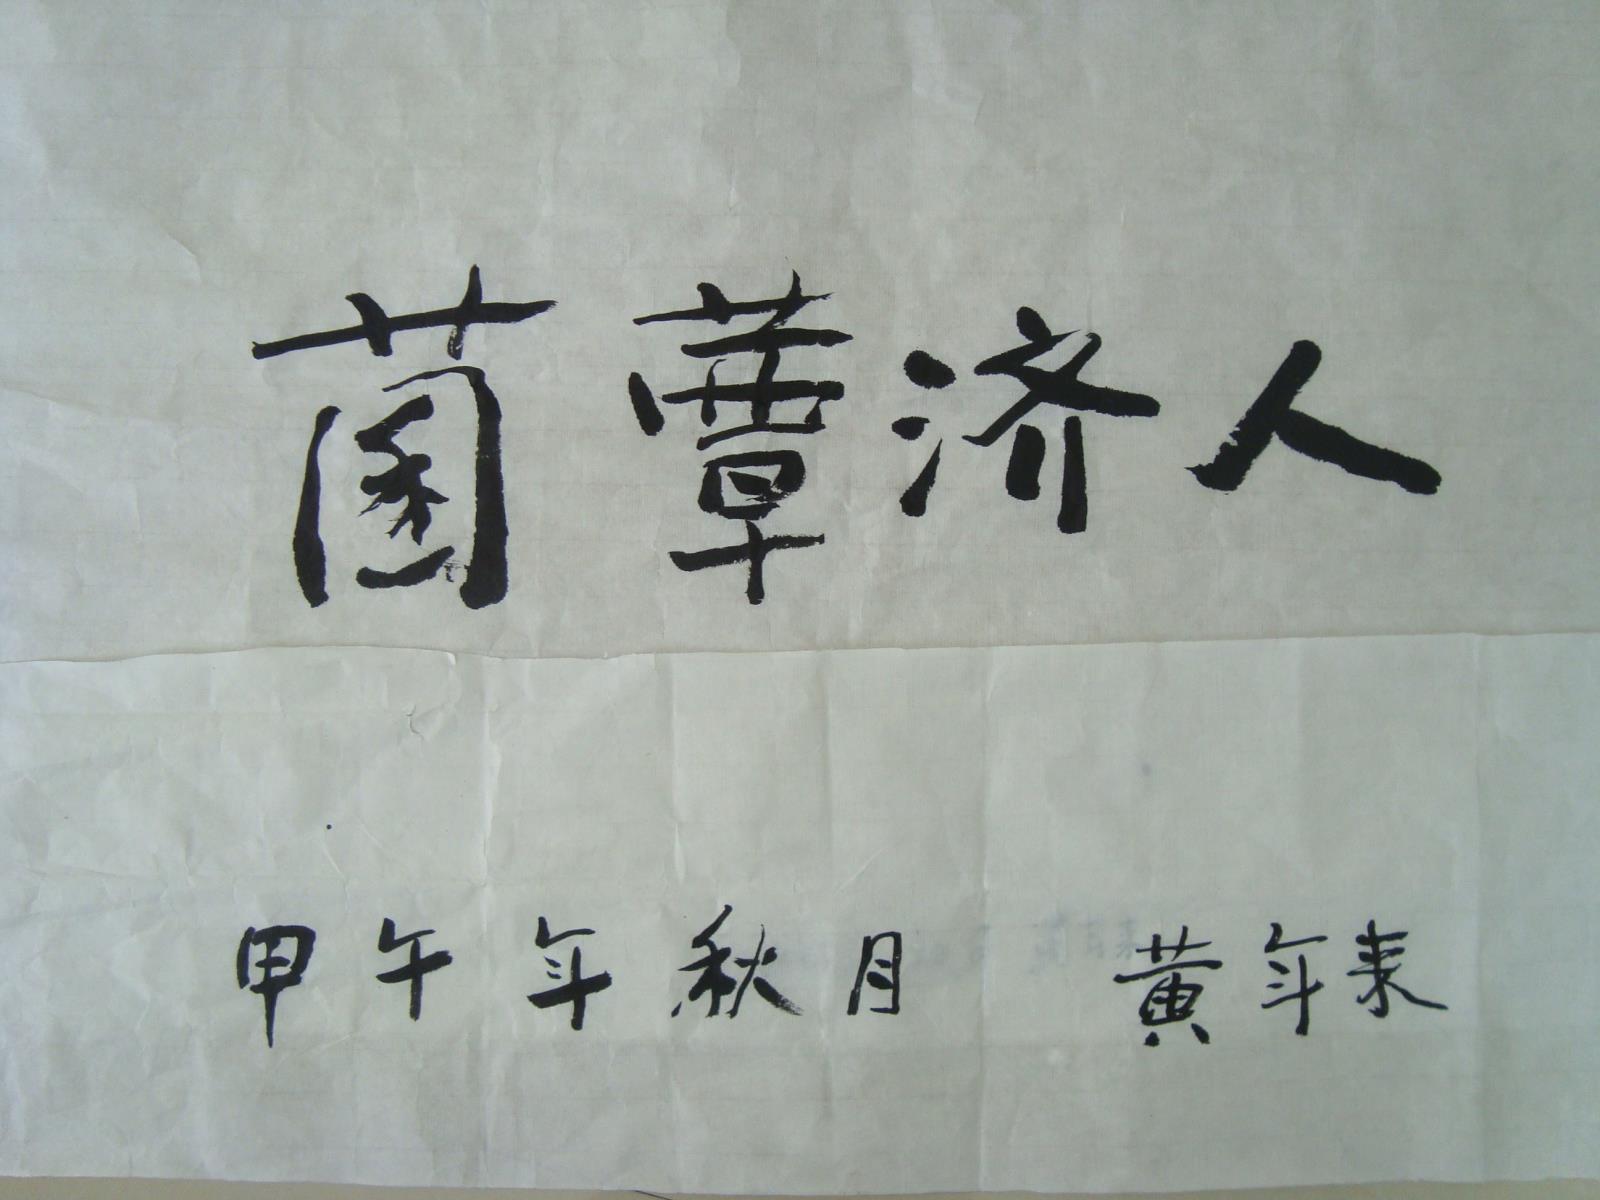 菌蕈济人
甲午年秋月 黄年来